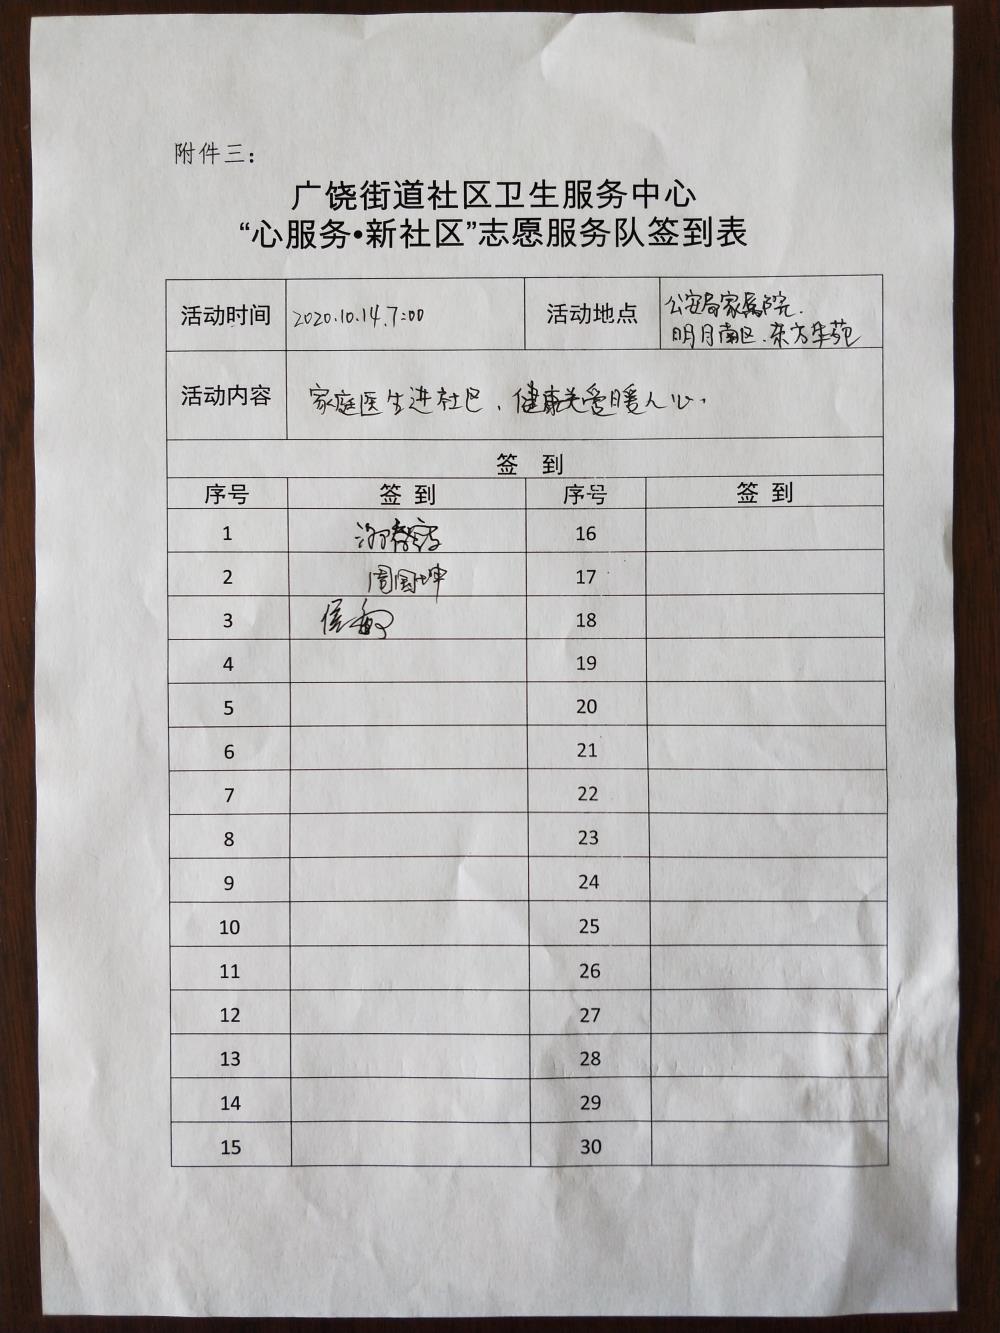 附件三：
广饶街道社区卫生服务中心
“心服务•新社区”志愿服务队签到表
活动时间 2020.10.14.7:00 活动地点 公安局家属院.
明月南区.东方华苑
活动内容 家庭医生进社区、健康关爱暖人心.
签 到
序号 签 到 序号 签 到
1 16
2 周国坤 17
3 侯 18
4 19
5 20
6 21
7 22
8 23
9 24
10 25
11 26
12 27
13 28
14 29
15 30